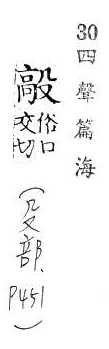 30四聲篇海
毃俗口交切(殳部.P451)